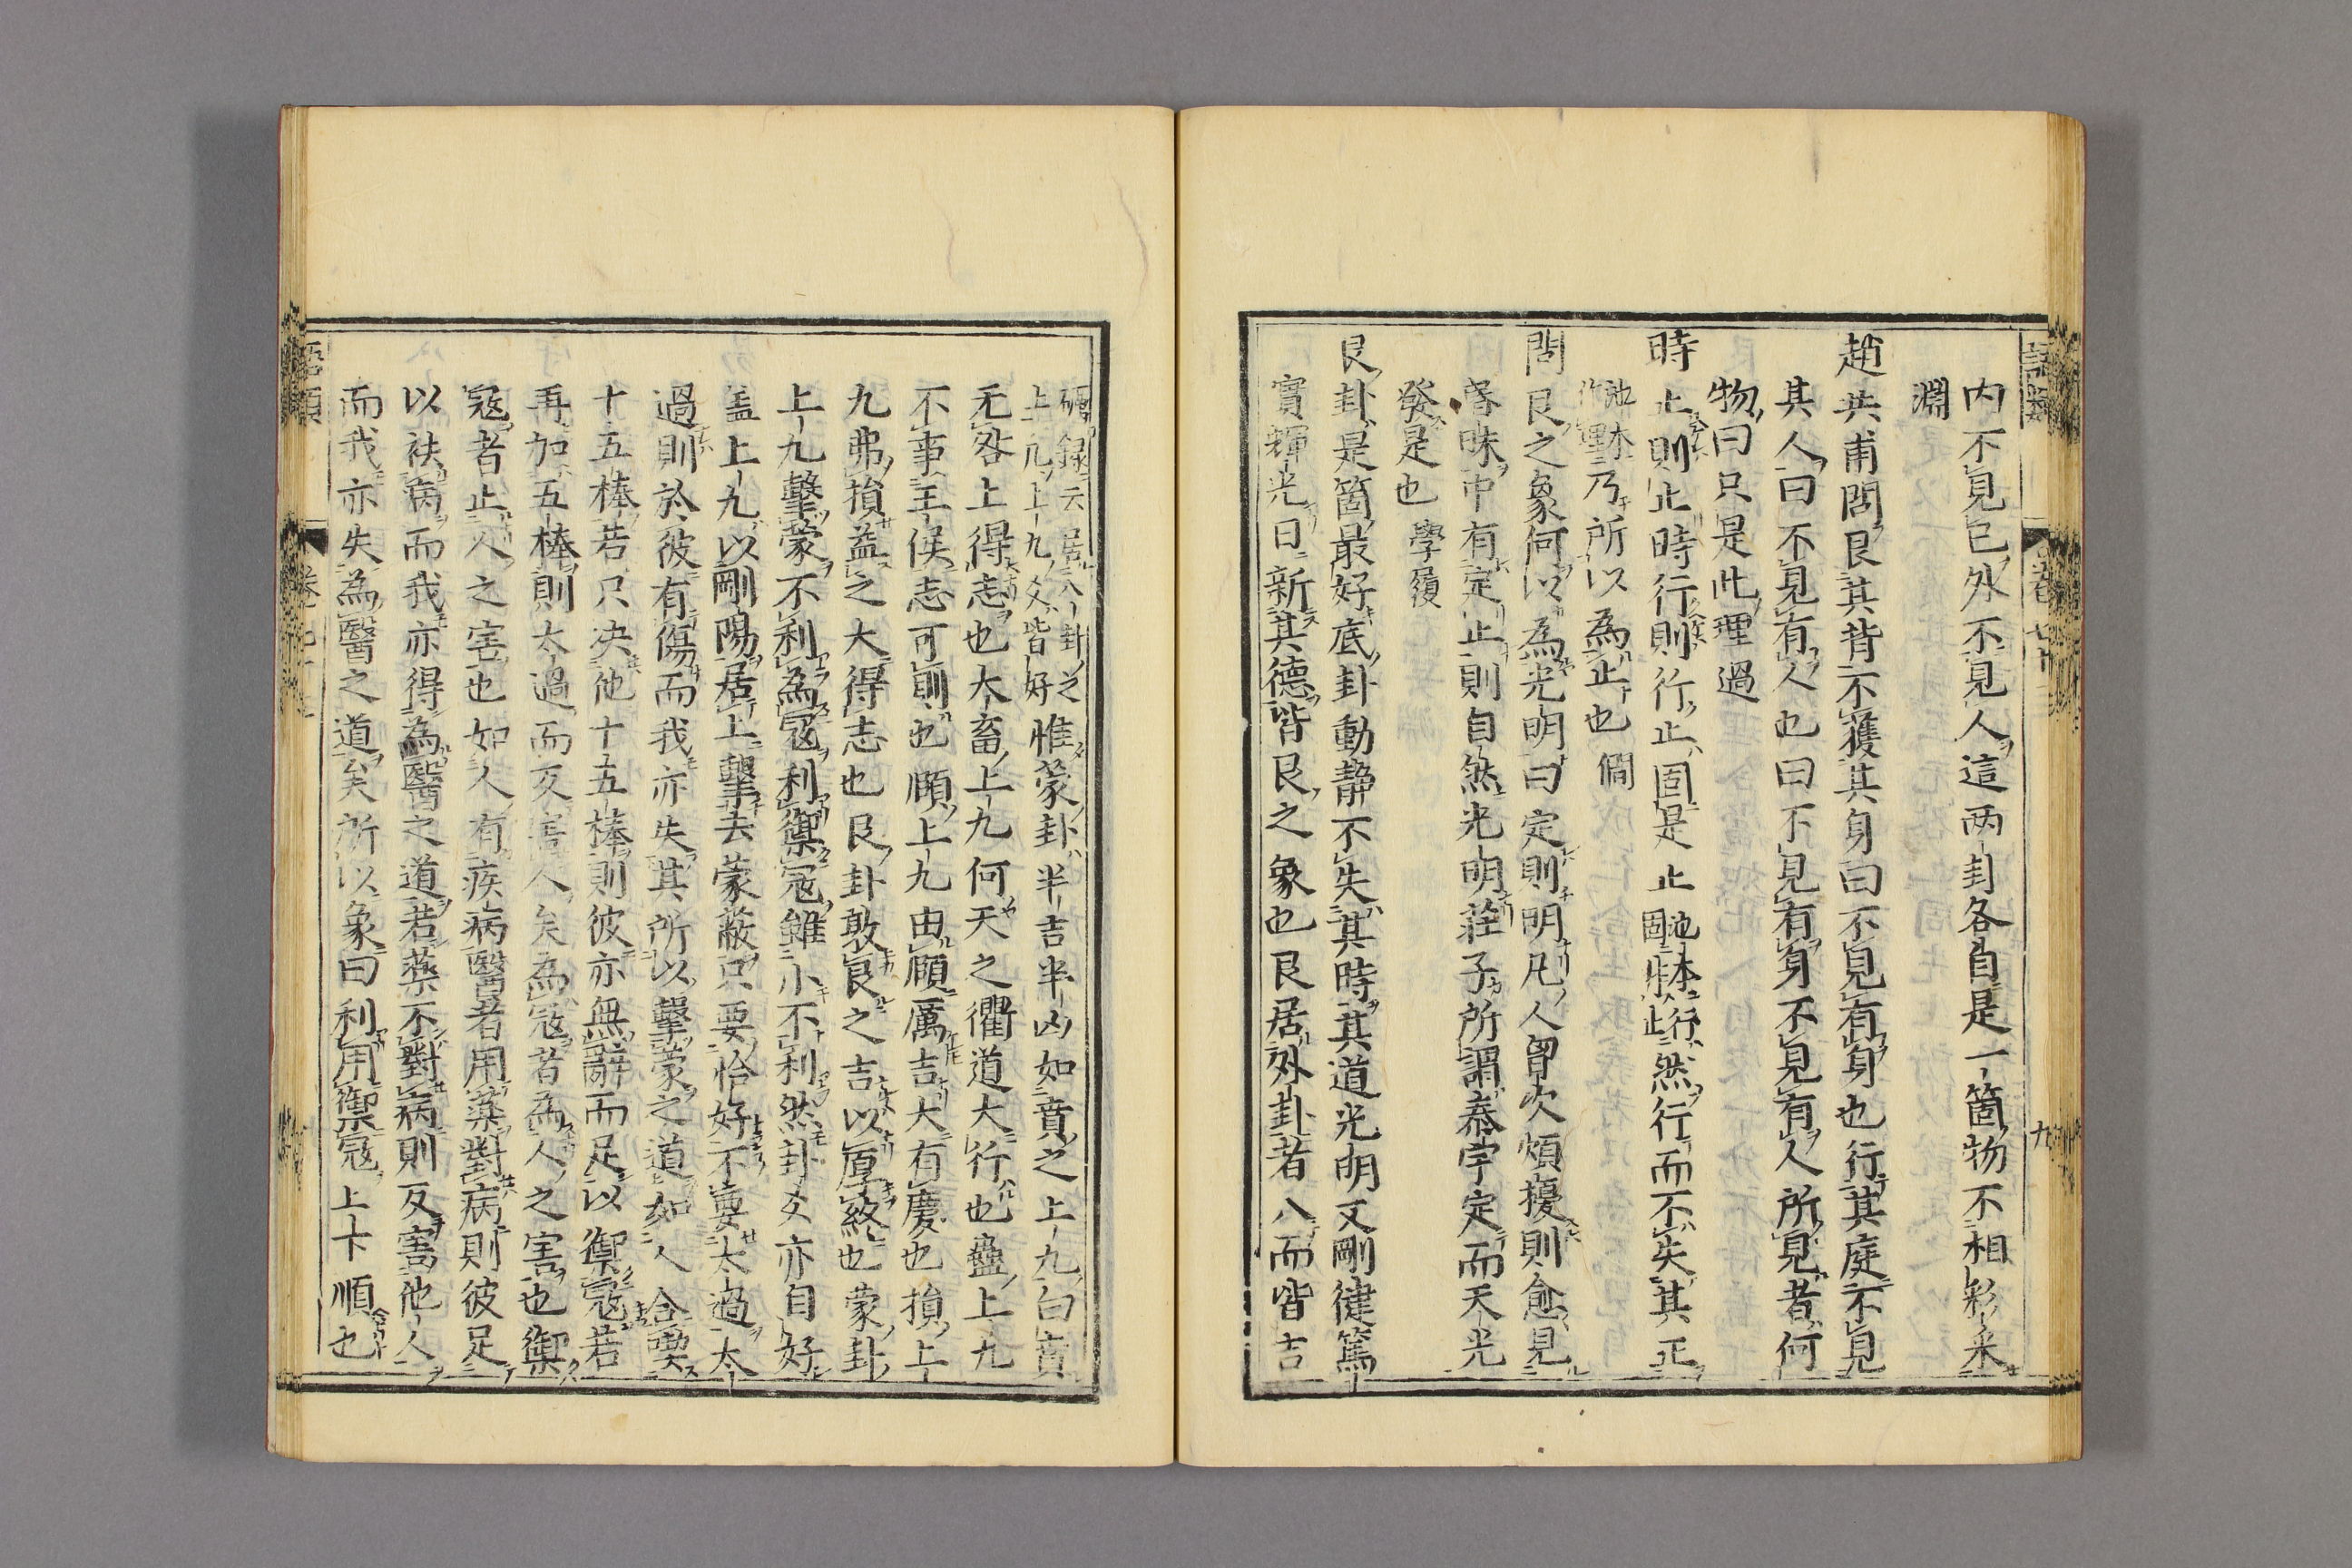 内不見已外不見人這兩卦各自是一箇物不相彩采
淵
趙共甫問艮其背不獲其身曰不見有身也行其庭不見
其人曰不見有人也曰不見有身不見有人所見者何
物曰只是此理過
時止則止時行則行止固是止池本行固非止然行而不失其正
池本作理乃所以為止也僩
問艮之象何以為光明曰定則明凡人胷次煩擾則愈見
昏昧中有定止則自然光明莊子所謂泰宇定而天光
發是也學履
艮卦是箇最好底卦動静不失其時其道光明又剛健篤
實輝光日新其德皆艮之象也艮居外卦者八而皆吉
礪録云居八卦之上凡上九爻皆好惟蒙卦半吉半凶如賁之上九白賁
无咎上得志也大畜上九何天之衢道大行也蠱上九
不事王侯志可則也頤上九由頤厲吉大有慶也損上
九弗損益之大得志也艮卦敦艮之吉以厚終也蒙卦
上九擊蒙不利為冦利禦冦雖小不利然卦爻亦自好
盖上九以剛陽居上擊去蒙蔽只要恰好不要太過太
過則於彼有傷而我亦失其所以擊蒙之道如人合喫
十五棒若只决他十五棒則彼亦無辭而足以禦冦若
再加五棒則太過而反害人矣為冦者為人之害也禦
冦者止人之害也如人有疾病醫者用藥對病則彼足
以祛病而我亦得為醫之道若藥不對病則反害他人
而我亦失為醫之道矣所以象曰利用禦冦上下順也
語類
九